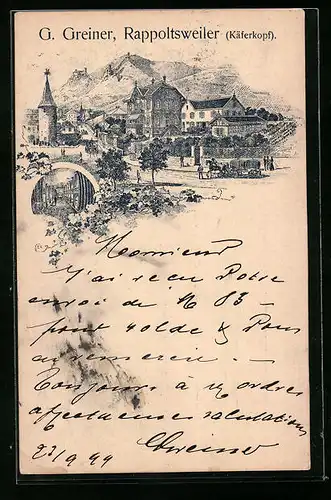 G. Greiner, Rappoltsweiler (Käferkopf).
Monsieur
J'ai reçu Votre
envoi de M 85 –
pour solde & Vous
en remercie. –
Toujours à vos ordres
affectueuses salutations
Greiner
23/9 99